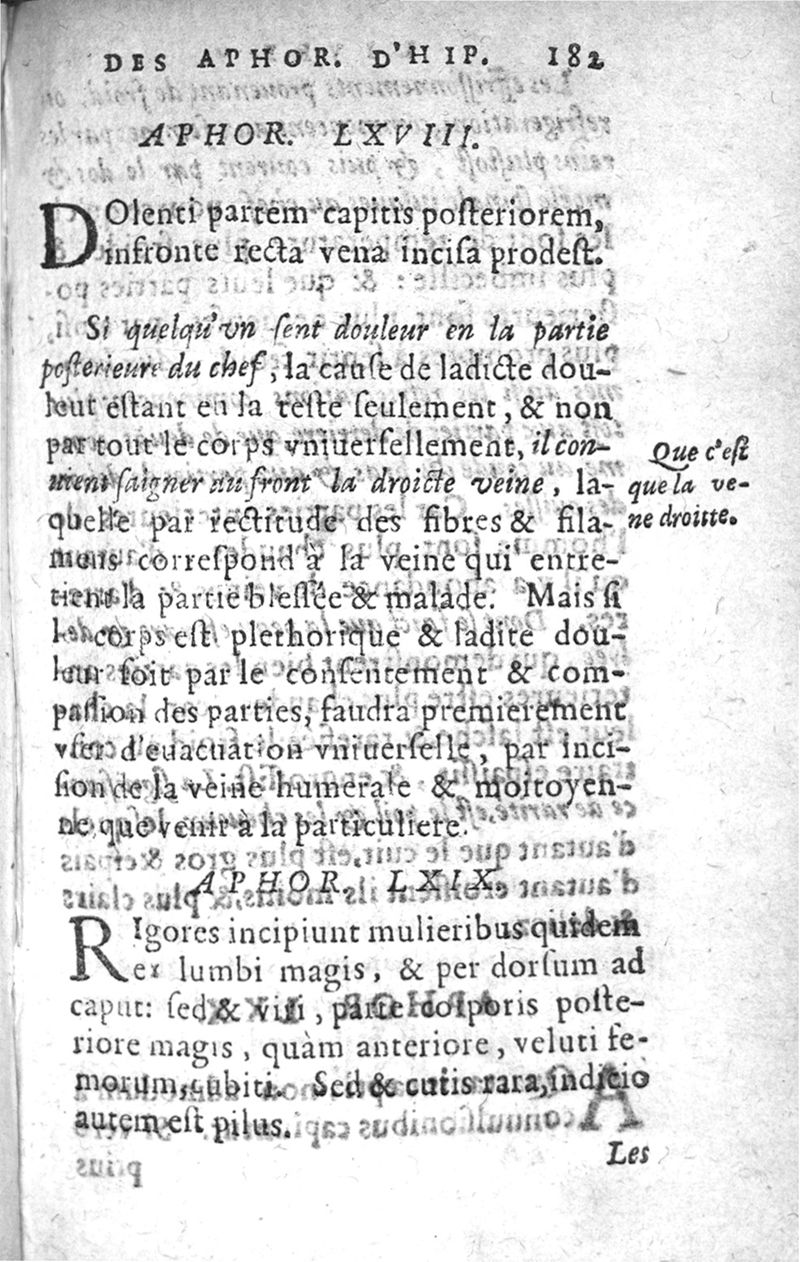 DES APHOR. D'HIP. 182
APHOR. LXVIII.
DOlenti partem capitis poſteriorem,
infronte recta vena inciſa prodeſt.
Si quelqu'vn ſent douleur en la partie
poſterieure du chef, la cauſe de ladicte dou-
leur eſtant en la teſte ſeulement, & non
par tout le corps vniuerſellement, il con-
uient ſaigner au front la droicte veine, la-
quelle par rectitude des fibres & fila-
mens correſpond à la veine qui entre-
tient la partie bleſſée & malade. Mais ſi
le corps eſt plethorique & ladite dou-
leur ſoit par le conſentement & com-
paſſion des parties, faudra premierement
vſer d'euacuation vniuerſelle, par inci-
ſion de la veine humerale & moitoyen-
ne que venir à la particuliere.
Que c'eſt
que la ve-
ne droitte.
APHOR. LXIX.
RIgores incipiunt mulieribus quidem
ex lumbi magis, & per dorſum ad
caput: ſed & viri, parte corporis poſte-
riore magis, quàm anteriore, veluti fe-
morum, cubiti. Sed & cutis rara, indicio
autem eſt pilus.
Les